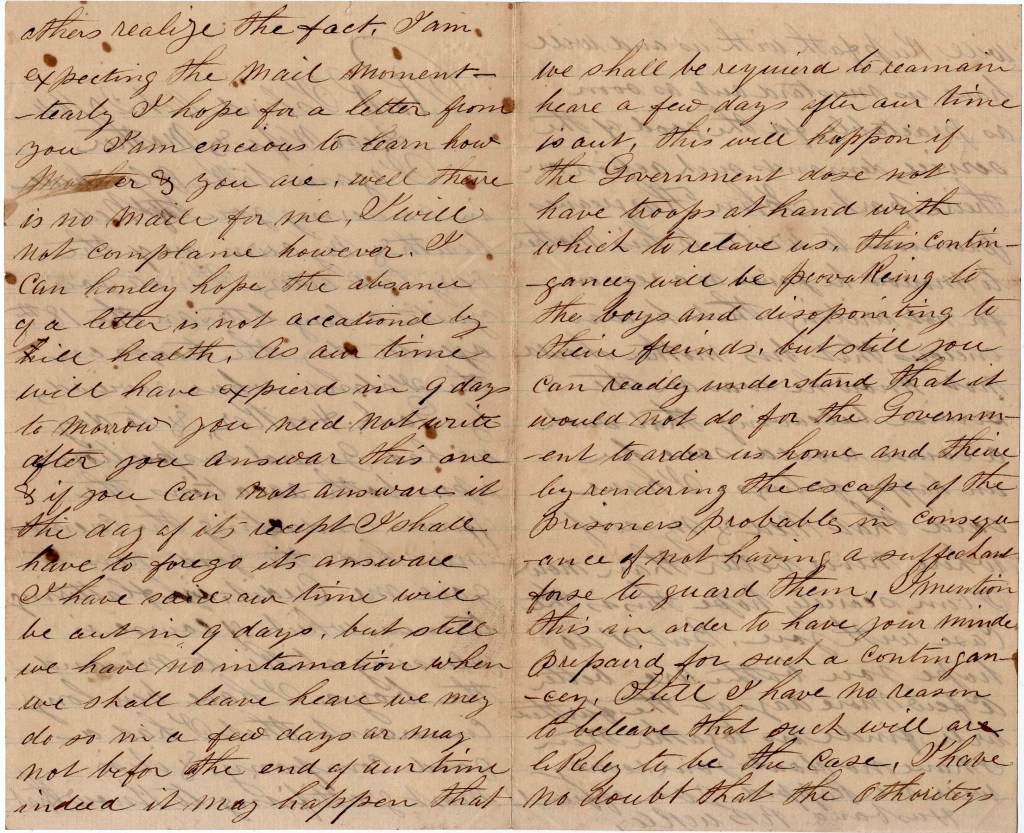 others realize the fact. I am
expecting the Mail Moment-
-tearly I hope for a letter from
you I am encious to learn how
Mother & you are. well there
is no Maile for me. I will
not complaine however. I
Can honley hope the absance
of a letter is not accationd by
hill health. As our time
will have expierd in 9 days
to morrow you need not write
after you answar this one
& if you Can not answare it
the day of its recept I shall
have to forego its answare
I have said our time will
be out in 9 days. but still
we have no intamation when
we shall leave heare we may
do so in a few days or may
not befor the end of our time
indeed it may happen that
we shall be requierd to reamain
heare a few days after our time
is out. this will happon if
the Government dose not
have troops at hand with
which to releave us. this Contin-
-gancey will be provokeing to
the boys and disopointing to
theire freinds. but still you
Can readly understand that it
would not do for the Governm-
-ent to order us home and theire
by rendering the escape of the
prisoners probable, in consequ-
-ance of not having a suffechant
forse to guard them, I mention
this in order to have your minde
prepaird for such a Contingan-
-cey. Still I have no reason
to beleave that such will are
likeley to be the Case. I have
no doubt that the Othoriteys